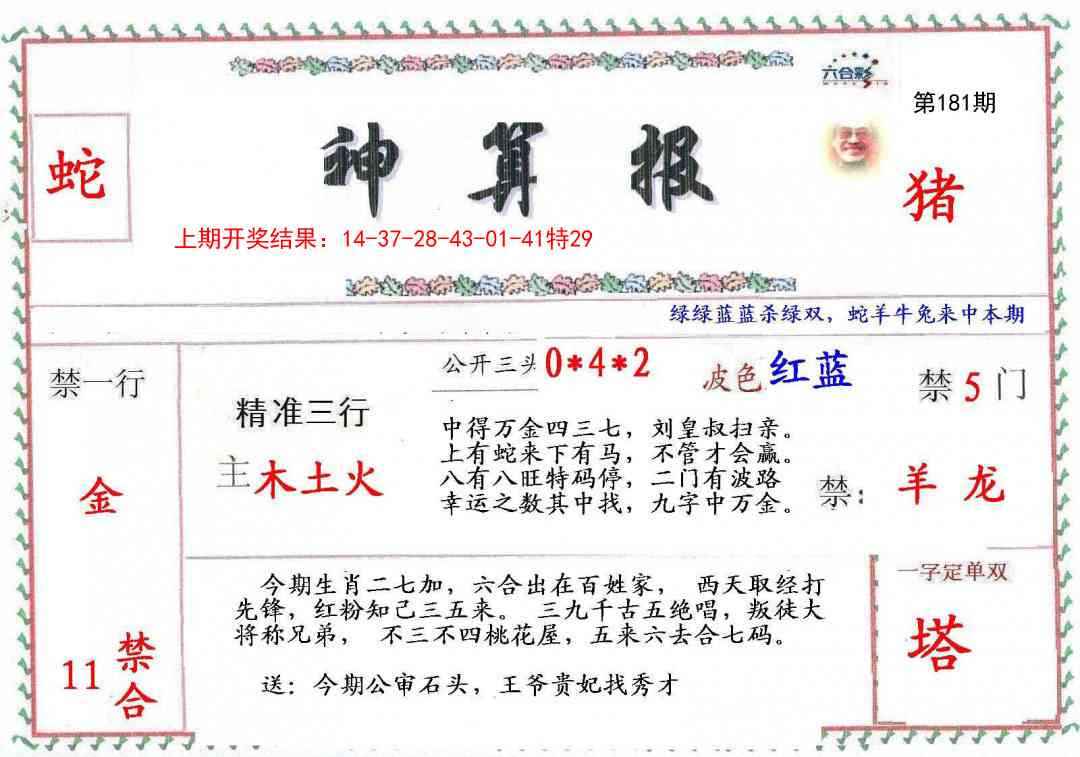 六合彩
第181期
蛇
神算报
猪
上期开奖结果：14-37-28-43-01-41特29
绿绿蓝蓝杀绿双，蛇羊牛兔来中本期
禁一行
金
11
禁合
精准三行
主木土火
公开三头0*4*2
波色红蓝
中得万金四三七，刘皇叔扫亲。
上有蛇来下有马，不管才会赢。
八有八旺特码停，二门有波路
幸运之数其中找，九字中万金。
禁5门
禁：羊 龙
今期生肖二七加，六合出在百姓家， 西天取经打
先锋，红粉知己三五来。 三九千古五绝唱，叛徒大
将称兄弟， 不三不四桃花屋，五来六去合七码。
送：今期公审石头，王爷贵妃找秀才
一字定单双
塔